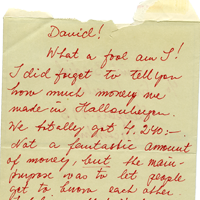 David!
What a fool am I!
I did forget to tell you
how much money we
made in Hallenbergen.
We totally got £ 240:-
Not a fantastic amount
of money, but the main-
purpose was to let people
get to know each other